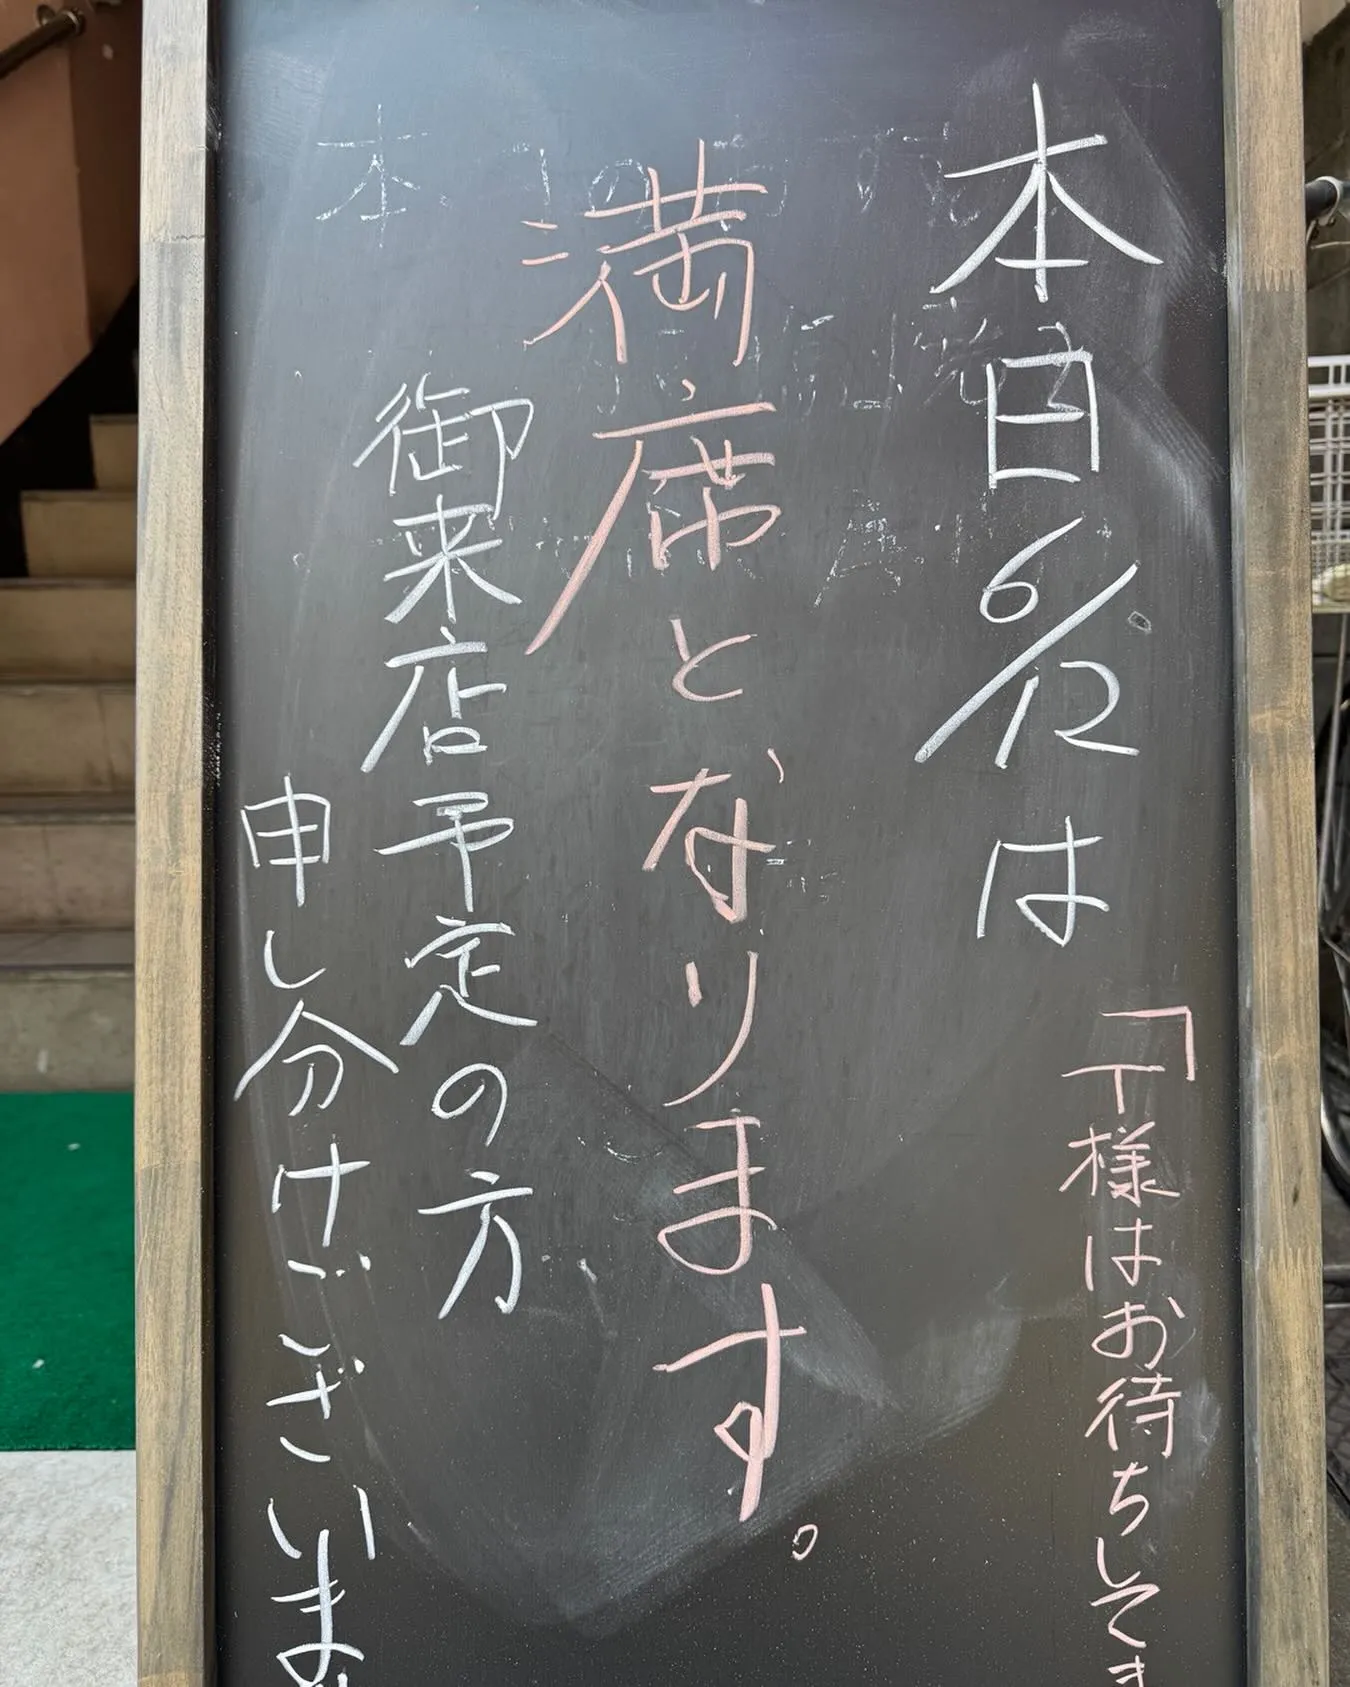 本日6/12は
「T様はお待ちしてま
満席となります。
御来店予定の方
申し分けございま